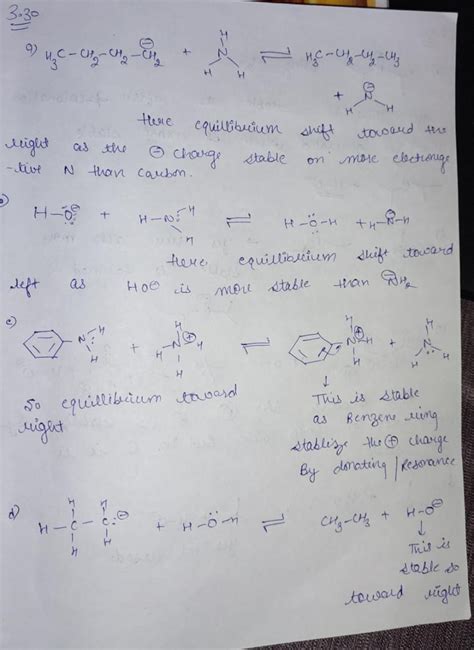 3.30
a) H3C-CH2-CH2-CH2⊖ + N H H H ⇌ H3C-CH2-CH2-CH3
+ ⊖N H H
Here equillibrium shift toward the
right as the ⊖ charge stable on more electronega
-tive N than carbon.
b) H-O⊖ + H-N H H ⇌ H-O-H + H-N⊖-H
Here equillibrium shift toward
left as HO⊖ is more stable than ⊖NH2
c) N H H + H-N⊕ H H H ⇌ N⊕ H H H + N H H H
So equillibrium toward
right
↓
This is stable
as Benzene ring
stablize the ⊕ charge
By donating / Resonance
d) H-C-C:⊖ H H H H + H-O-H ⇌ CH3-CH3 + H-O⊖
↓
This is
stable so
toward right